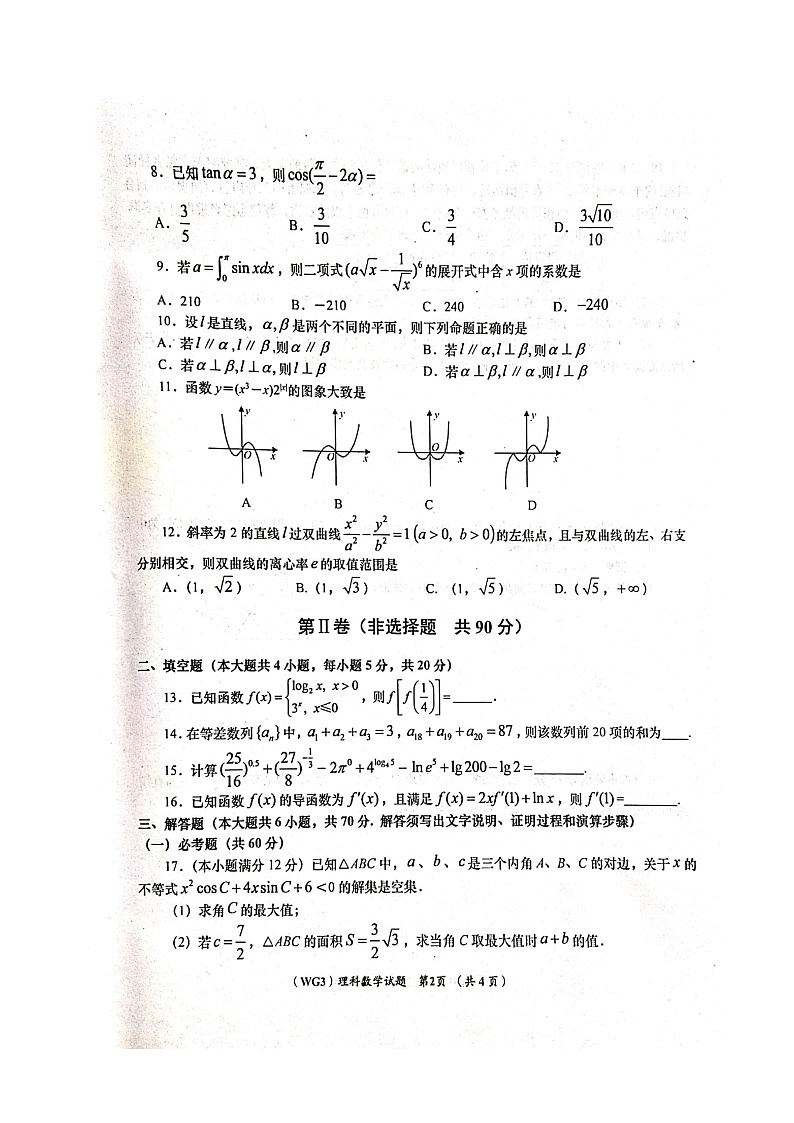 8. 已知 tanα=3，则 cos(π/2−2α)=
A. 3/5 B. 3/10 C. 3/4 D. 3√10/10
9. 若 a=∫₀^π sin xdx，则二项式 (a√x−1/√x)⁶ 的展开式中含 x 项的系数是
A. 210 B. −210 C. 240 D. −240
10. 设 l 是直线，α,β 是两个不同的平面，则下列命题正确的是
A. 若 l∥α,l∥β,则 α∥β B. 若 l∥α,l⊥β,则 α⊥β
C. 若 α⊥β,l⊥α,则 l⊥β D. 若 α⊥β,l∥α,则 l⊥β
11. 函数 y=(x³−x)2^|x| 的图象大致是
y y y y
O x O x O x O x
A B C D
12. 斜率为 2 的直线 l 过双曲线 x²/a²−y²/b²=1(a>0, b>0) 的左焦点，且与双曲线的左、右支
分别相交，则双曲线的离心率 e 的取值范围是
A. (1, √2) B. (1, √3) C. (1, √5) D. (√5, +∞)
第Ⅱ卷（非选择题 共 90 分）
二、填空题（本大题共 4 小题，每小题 5 分，共 20 分）
13. 已知函数 f(x)={log₂x, x>0 3ˣ, x≤0，则 f[f(1/4)]=______.
14. 在等差数列 {aₙ} 中，a₁+a₂+a₃=3，a₁₈+a₁₉+a₂₀=87，则该数列前 20 项的和为____.
15. 计算 (25/16)^0.5+(27/8)^(−1/3)−2π⁰+4^(log₄5)−ln e⁵+lg200−lg2=_______.
16. 已知函数 f(x) 的导函数为 f′(x)，且满足 f(x)=2xf′(1)+ln x，则 f′(1)=_______.
三、解答题（本大题共 6 小题，共 70 分. 解答须写出文字说明、证明过程和演算步骤）
（一）必考题（共 60 分）
17.（本小题满分 12 分）已知△ABC 中，a、b、c 是三个内角 A、B、C 的对边，关于 x 的
不等式 x²cosC+4xsinC+6<0 的解集是空集.
（1）求角 C 的最大值；
（2）若 c=7/2，△ABC 的面积 S=3/2√3，求当角 C 取最大值时 a+b 的值.
（WG3）理科数学试题 第2页（共4页）